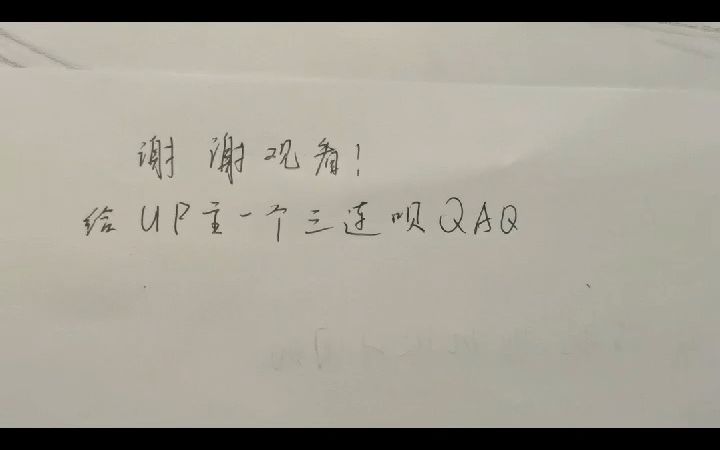 谢谢观看！
给UP主一个三连呗QAQ